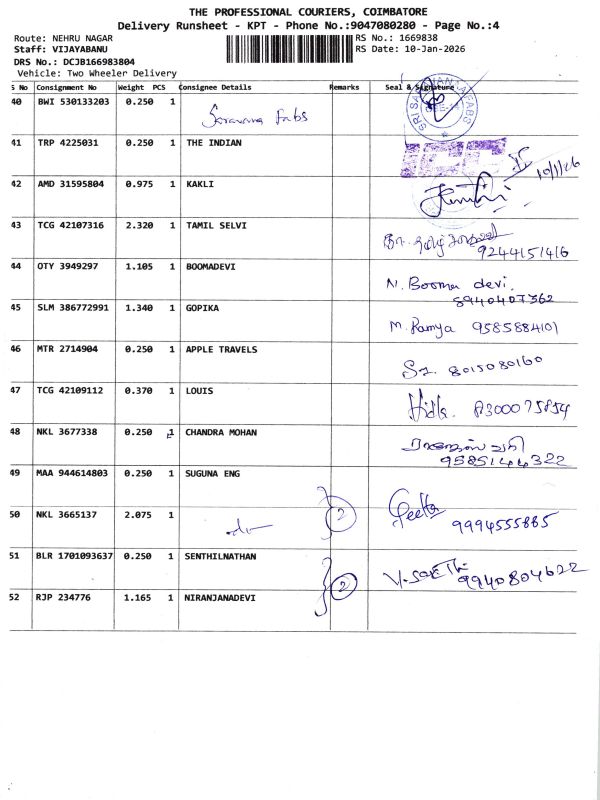 THE PROFESSIONAL COURIERS, COIMBATORE
Delivery Runsheet - KPT - Phone No.:9047080280 - Page No.:4
Route: NEHRU NAGAR
RS No.: 1669838
Staff: VIJAYABANU
RS Date: 10-Jan-2026
DRS No.: DCJB166983804
Vehicle: Two Wheeler Delivery
S No Consignment No Weight PCS Consignee Details Remarks Seal & Signature
40 BWI 530133203 0.250 1 Saravana Fabs
41 TRP 4225031 0.250 1 THE INDIAN
10/1/26
42 AMD 31595804 0.975 1 KAKLI
43 TCG 42107316 2.320 1 TAMIL SELVI
9244151416
44 OTY 3949297 1.105 1 BOOMADEVI N. Booma devi.
8940407362
45 SLM 386772991 1.340 1 GOPIKA M. Ramya 9585884101
46 MTR 2714904 0.250 1 APPLE TRAVELS 8015080160
47 TCG 42109112 0.370 1 LOUIS 8300075854
48 NKL 3677338 0.250 1 CHANDRA MOHAN
9585144322
49 MAA 944614803 0.250 1 SUGUNA ENG
50 NKL 3665137 2.075 1 do 2 Geetha 9994555885
51 BLR 1701093637 0.250 1 SENTHILNATHAN
2 V. Sakthi 9940804622
52 RJP 234776 1.165 1 NIRANJANADEVI